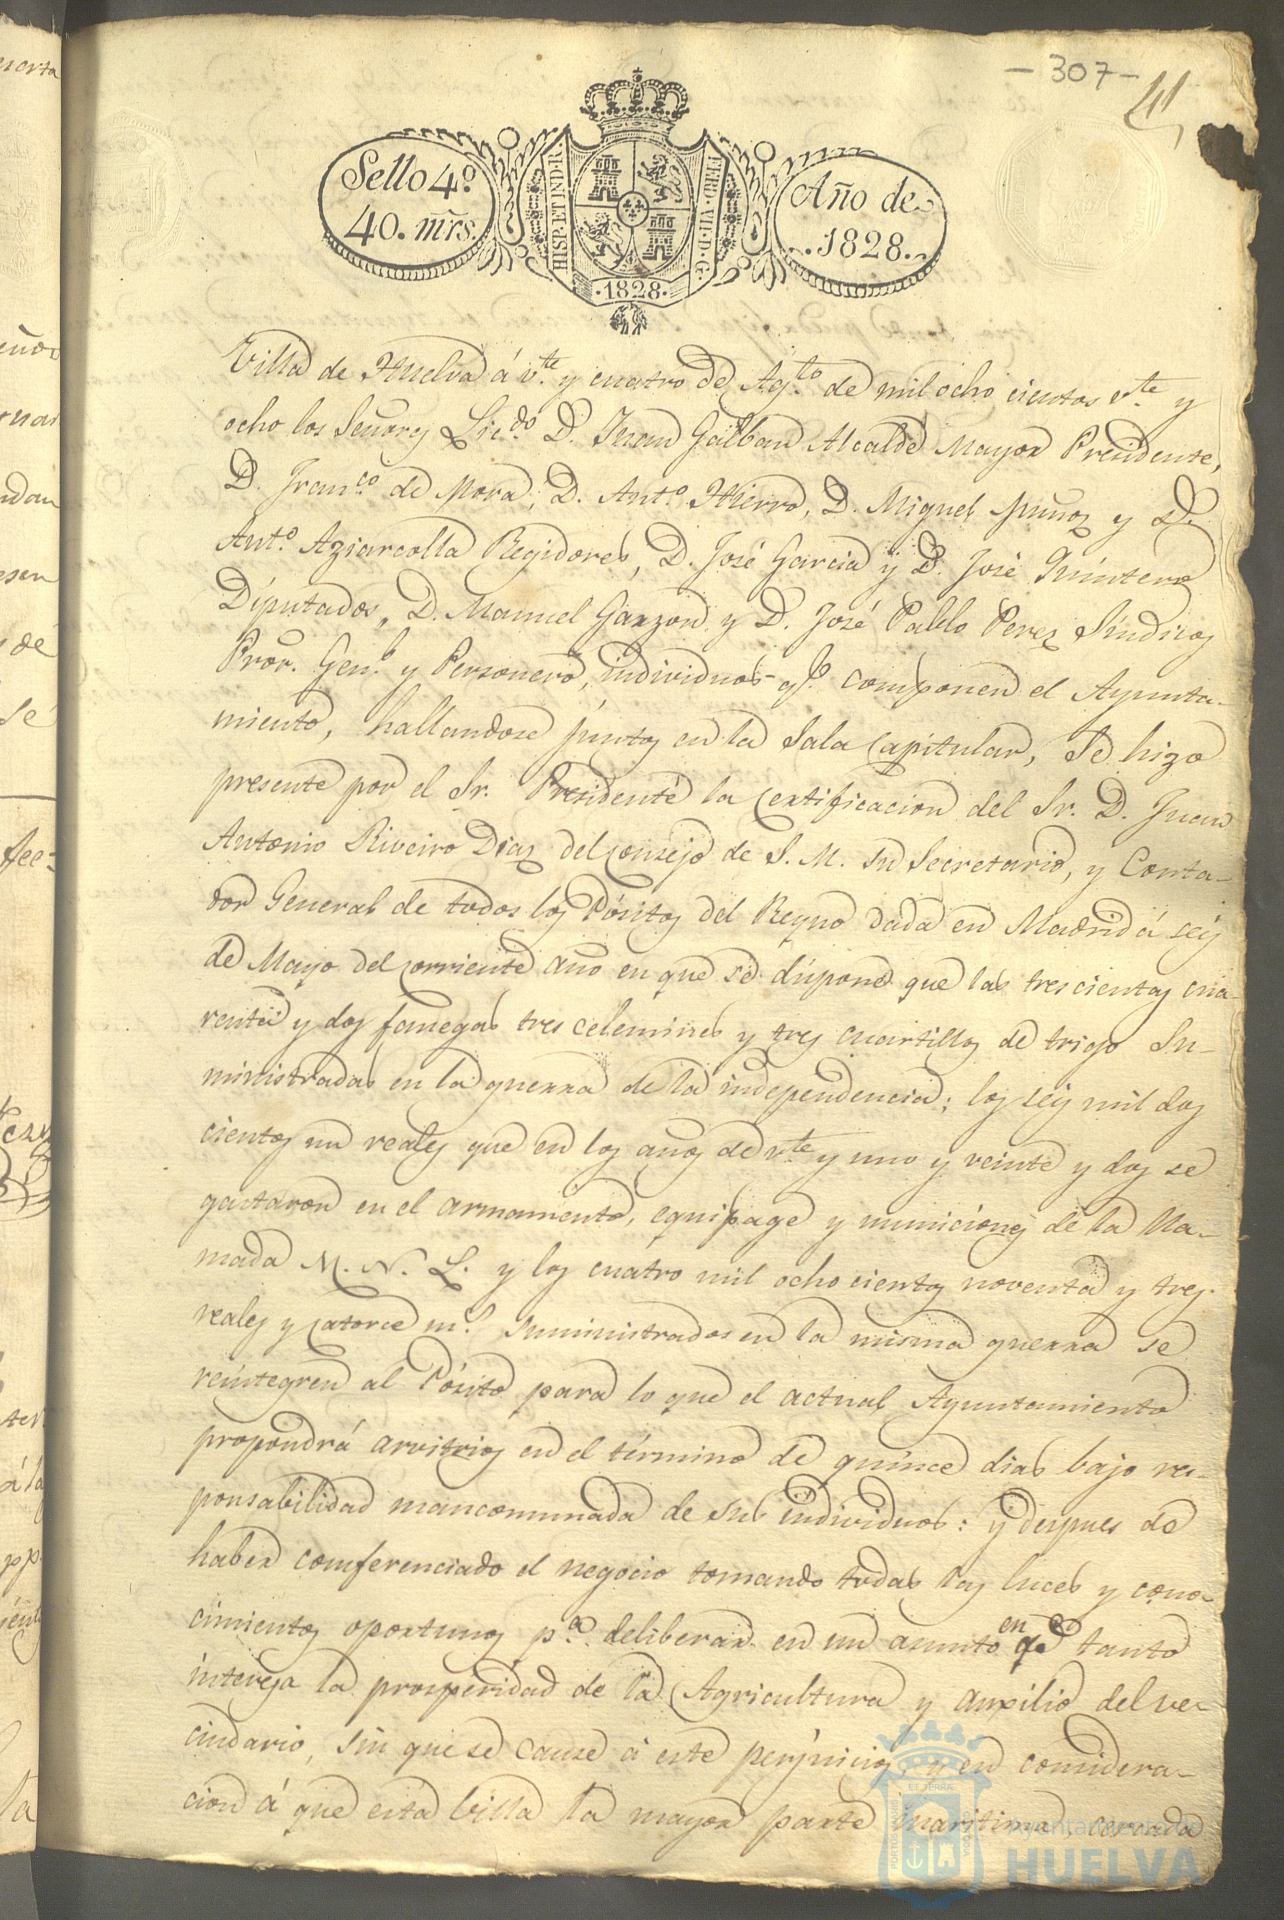 - 307 -
41
Sello 4º
40. mrs.
HISP. ET IND. R.
FERD. VII. D. G.
·1828·
Año de
1828.
Villa de Huelva á vte. y cuatro de Agto. de mil ocho cientos vte. y
ocho los Señores Licdo. D. Juan Galban Alcalde Mayor Presidente,
D. Franco. de Mora, D. Anto. Hierro, D. Miguel Muñoz y D.
Anto. Aziarcolla Regidores, D. José Garcia y D. José Quintero
Diputados, D. Manuel Garzon y D. José Pablo Perez Síndicos
Pror. Genl. y Personero, individuos qe. componen el Ayunta-
miento, hallandose juntos en la Sala Capitular, Se hizo
presente por el Sr. Presidente la Certificacion del Sr. D. Juan
Antonio Riveiro Diaz del Consejo de S. M. su Secretario, y Conta-
dor General de todos los Pósitos del Reyno dada en Madrid á seis
de Mayo del corriente año en que se dispone que las trescientas cua-
renta y dos fanegas tres celemines y tres cuartillos de trigo Su-
ministradas en la guerra de la independencia; los seis mil dos
cientos un reales que en los años de vte. y uno y veinte y dos se
gastaron en el armamento, equipage y municiones de la lla-
mada M. N. L. y los cuatro mil ocho cientos noventa y tres
reales y catorce ms. suministrados en la misma guerra se
reintegren al Pósito para lo que el actual Ayuntamiento
propondrá arvitrios en el término de quince dias bajo res-
ponsabilidad mancomunada de sus individuos: y despues de
haber comferenciado el negocio tomando todas las luces y cono-
cimientos oportunos pa. deliberar en un asunto en qe. tanto
interesa la prosperidad de la Agricultura y auxilio del ve-
cindario, sin que se cause á este perjuicios, y en considera-
cion á que esta Villa la mayor parte maritima, cercada
Ayuntamiento de
HUELVA